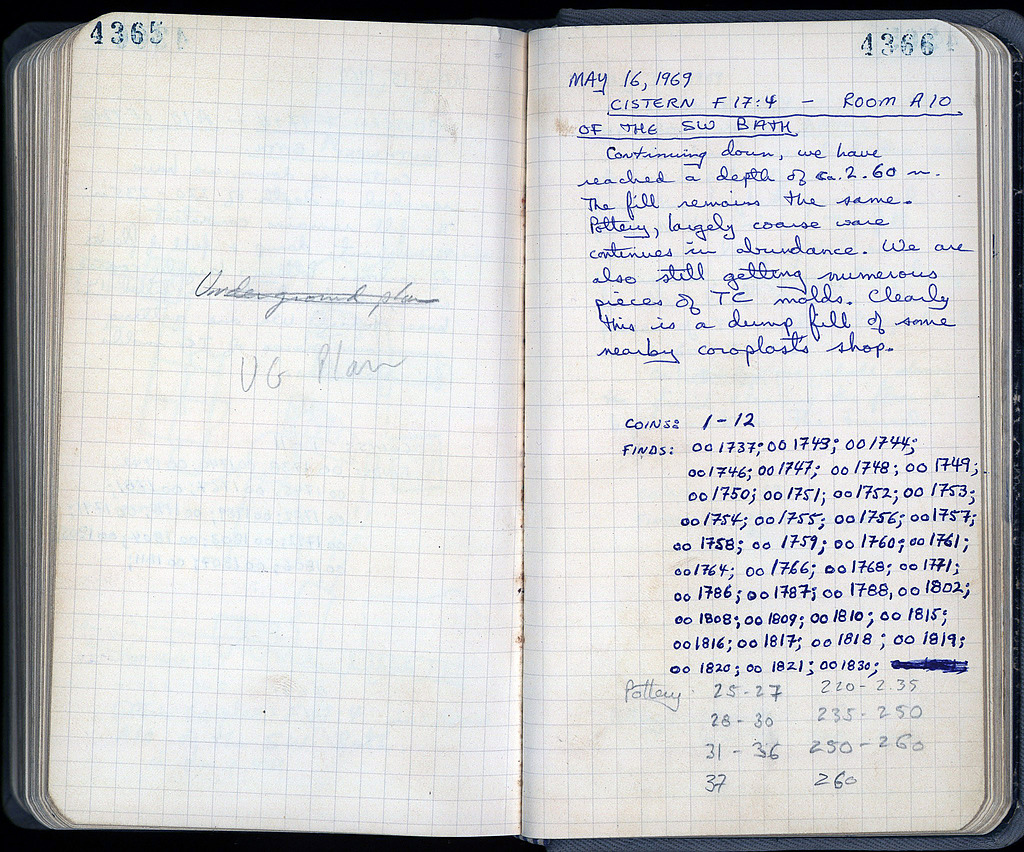 4365
Underground plan
UG Plan
4366
MAY 16, 1969
CISTERN F 17:4 — ROOM A 10
OF THE SW BATH
Continuing down, we have
reached a depth of ca. 2.60 m.
The fill remains the same.
Pottery, largely coarse ware
continues in abundance. We are
also still getting numerous
pieces of TC molds. Clearly
this is a dump fill of some
nearby coroplast's shop.
COINS: 1-12
FINDS: 00 1737; 00 1743; 00 1744;
00 1746; 00 1747; 00 1748; 00 1749;
00 1750; 00 1751; 00 1752; 00 1753;
00 1754; 00 1755; 00 1756; 00 1757;
00 1758; 00 1759; 00 1760; 00 1761;
00 1764; 00 1766; 00 1768; 00 1771;
00 1786; 00 1787; 00 1788, 00 1802;
00 1808; 00 1809; 00 1810; 00 1815;
00 1816; 00 1817; 00 1818; 00 1819;
00 1820; 00 1821; 00 1830;
Pottery 25-27 220-2.35
28-30 235-250
31-36 250-260
37 260